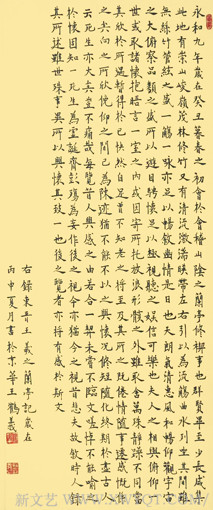 永和九年歲在癸丑暮春之初會於會稽山陰之蘭亭修禊事也群賢畢至少長咸集
此地有崇山峻嶺茂林修竹又有清流激湍映帶左右引以為流觴曲水列坐其次雖
無絲竹管絃之盛一觴一詠亦足以暢敘幽情是日也天朗氣清惠風和暢仰觀宇宙
之大俯察品類之盛所以遊目騁懷足以極視聽之娛信可樂也夫人之相與俯仰一
世或取諸懷抱晤言一室之內或因寄所託放浪形骸之外雖取舍萬殊靜躁不同當
其欣於所遇暫得於己快然自足曾不知老之將至及其所之既倦情隨事遷感慨係
之矣向之所欣俛仰之間已為陳迹猶不能不以之興懷況修短隨化終期於盡古人
云死生亦大矣豈不痛哉每覽昔人興感之由若合一契未嘗不臨文嗟悼不能喻之
於懷固知一死生為虛誕齊彭殤為妄作後之視今亦猶今之視昔悲夫故敘時人錄
其所述雖世殊事異所以興懷其致一也後之覽者亦將有感於斯文
右錄東晉王羲之蘭亭記歲在
丙申夏月書於京華王鶴
新文艺